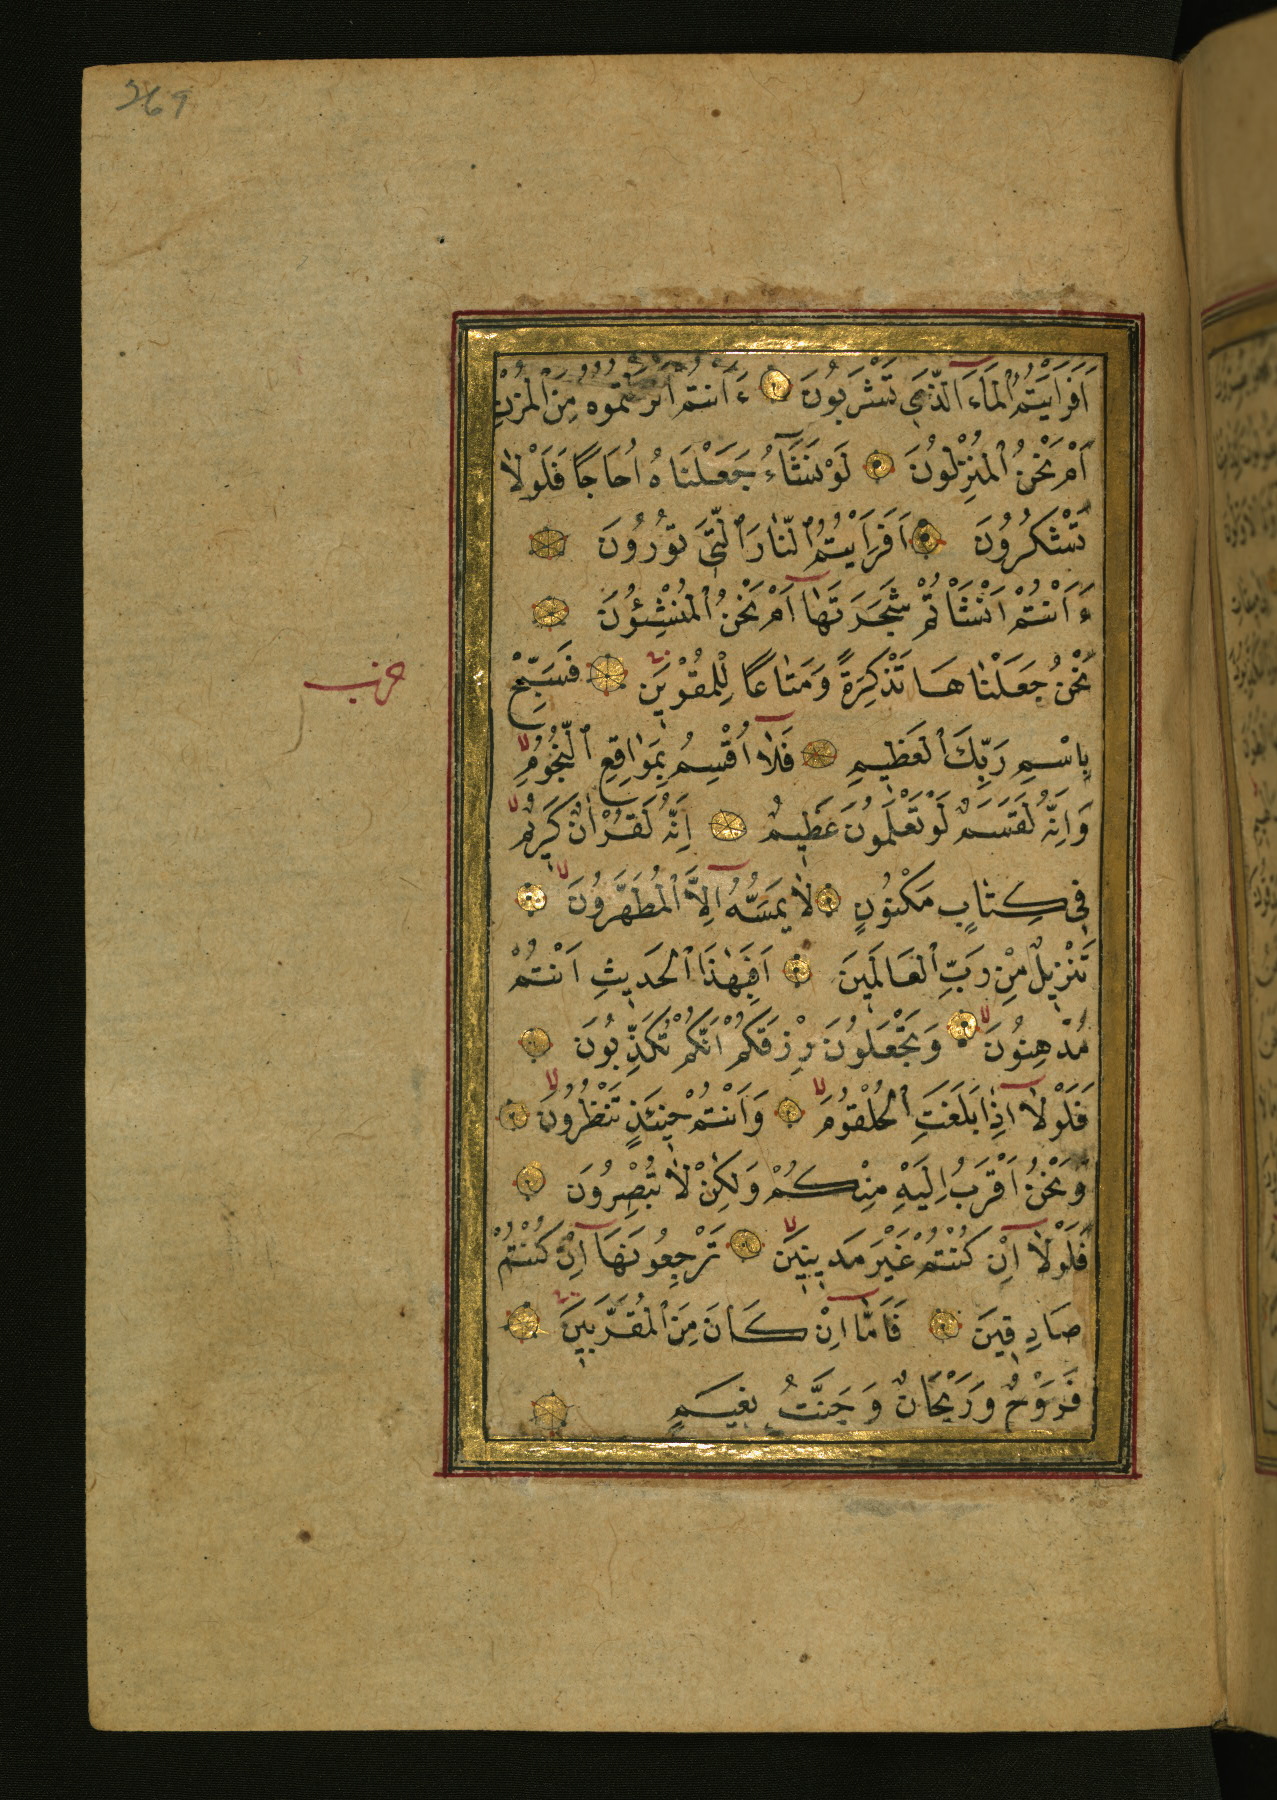 269
اَفَرَاَيْتُمُ الْمَآءَ الَّذٖى تَشْرَبُونَ ءَاَنْتُمْ اَنْزَلْتُمُوهُ مِنَ الْمُزْنِ
اَمْ نَحْنُ الْمُنْزِلُونَ لَوْ نَشَآءُ جَعَلْنَاهُ اُجَاجًا فَلَوْلَا
تَشْكُرُونَ اَفَرَاَيْتُمُ النَّارَ الَّتٖى تُورُونَ
ءَاَنْتُمْ اَنْشَاْتُمْ شَجَرَتَهَآ اَمْ نَحْنُ الْمُنْشِؤُنَ
نَحْنُ جَعَلْنَاهَا تَذْكِرَةً وَمَتَاعًا لِلْمُقْوٖينَ فَسَبِّحْ
حزب
بِاسْمِ رَبِّكَ الْعَظٖيمِ فَلَآ اُقْسِمُ بِمَوَاقِعِ النُّجُومِ
وَاِنَّهُ لَقَسَمٌ لَوْ تَعْلَمُونَ عَظٖيمٌ اِنَّهُ لَقُرْاٰنٌ كَرٖيمٌ
فٖى كِتَابٍ مَكْنُونٍ لَا يَمَسُّهُٓ اِلَّا الْمُطَهَّرُونَ
تَنْزٖيلٌ مِنْ رَبِّ الْعَالَمٖينَ اَفَبِهٰذَا الْحَدٖيثِ اَنْتُمْ
مُدْهِنُونَ وَتَجْعَلُونَ رِزْقَكُمْ اَنَّكُمْ تُكَذِّبُونَ
فَلَوْلَآ اِذَا بَلَغَتِ الْحُلْقُومَ وَاَنْتُمْ حٖينَئِذٍ تَنْظُرُونَ
وَنَحْنُ اَقْرَبُ اِلَيْهِ مِنْكُمْ وَلٰكِنْ لَا تُبْصِرُونَ
فَلَوْلَآ اِنْ كُنْتُمْ غَيْرَ مَدٖينٖينَ تَرْجِعُونَهَآ اِنْ كُنْتُمْ
صَادِقٖينَ فَاَمَّآ اِنْ كَانَ مِنَ الْمُقَرَّبٖينَ
فَرَوْحٌ وَرَيْحَانٌ وَجَنَّتُ نَعٖيمٍ